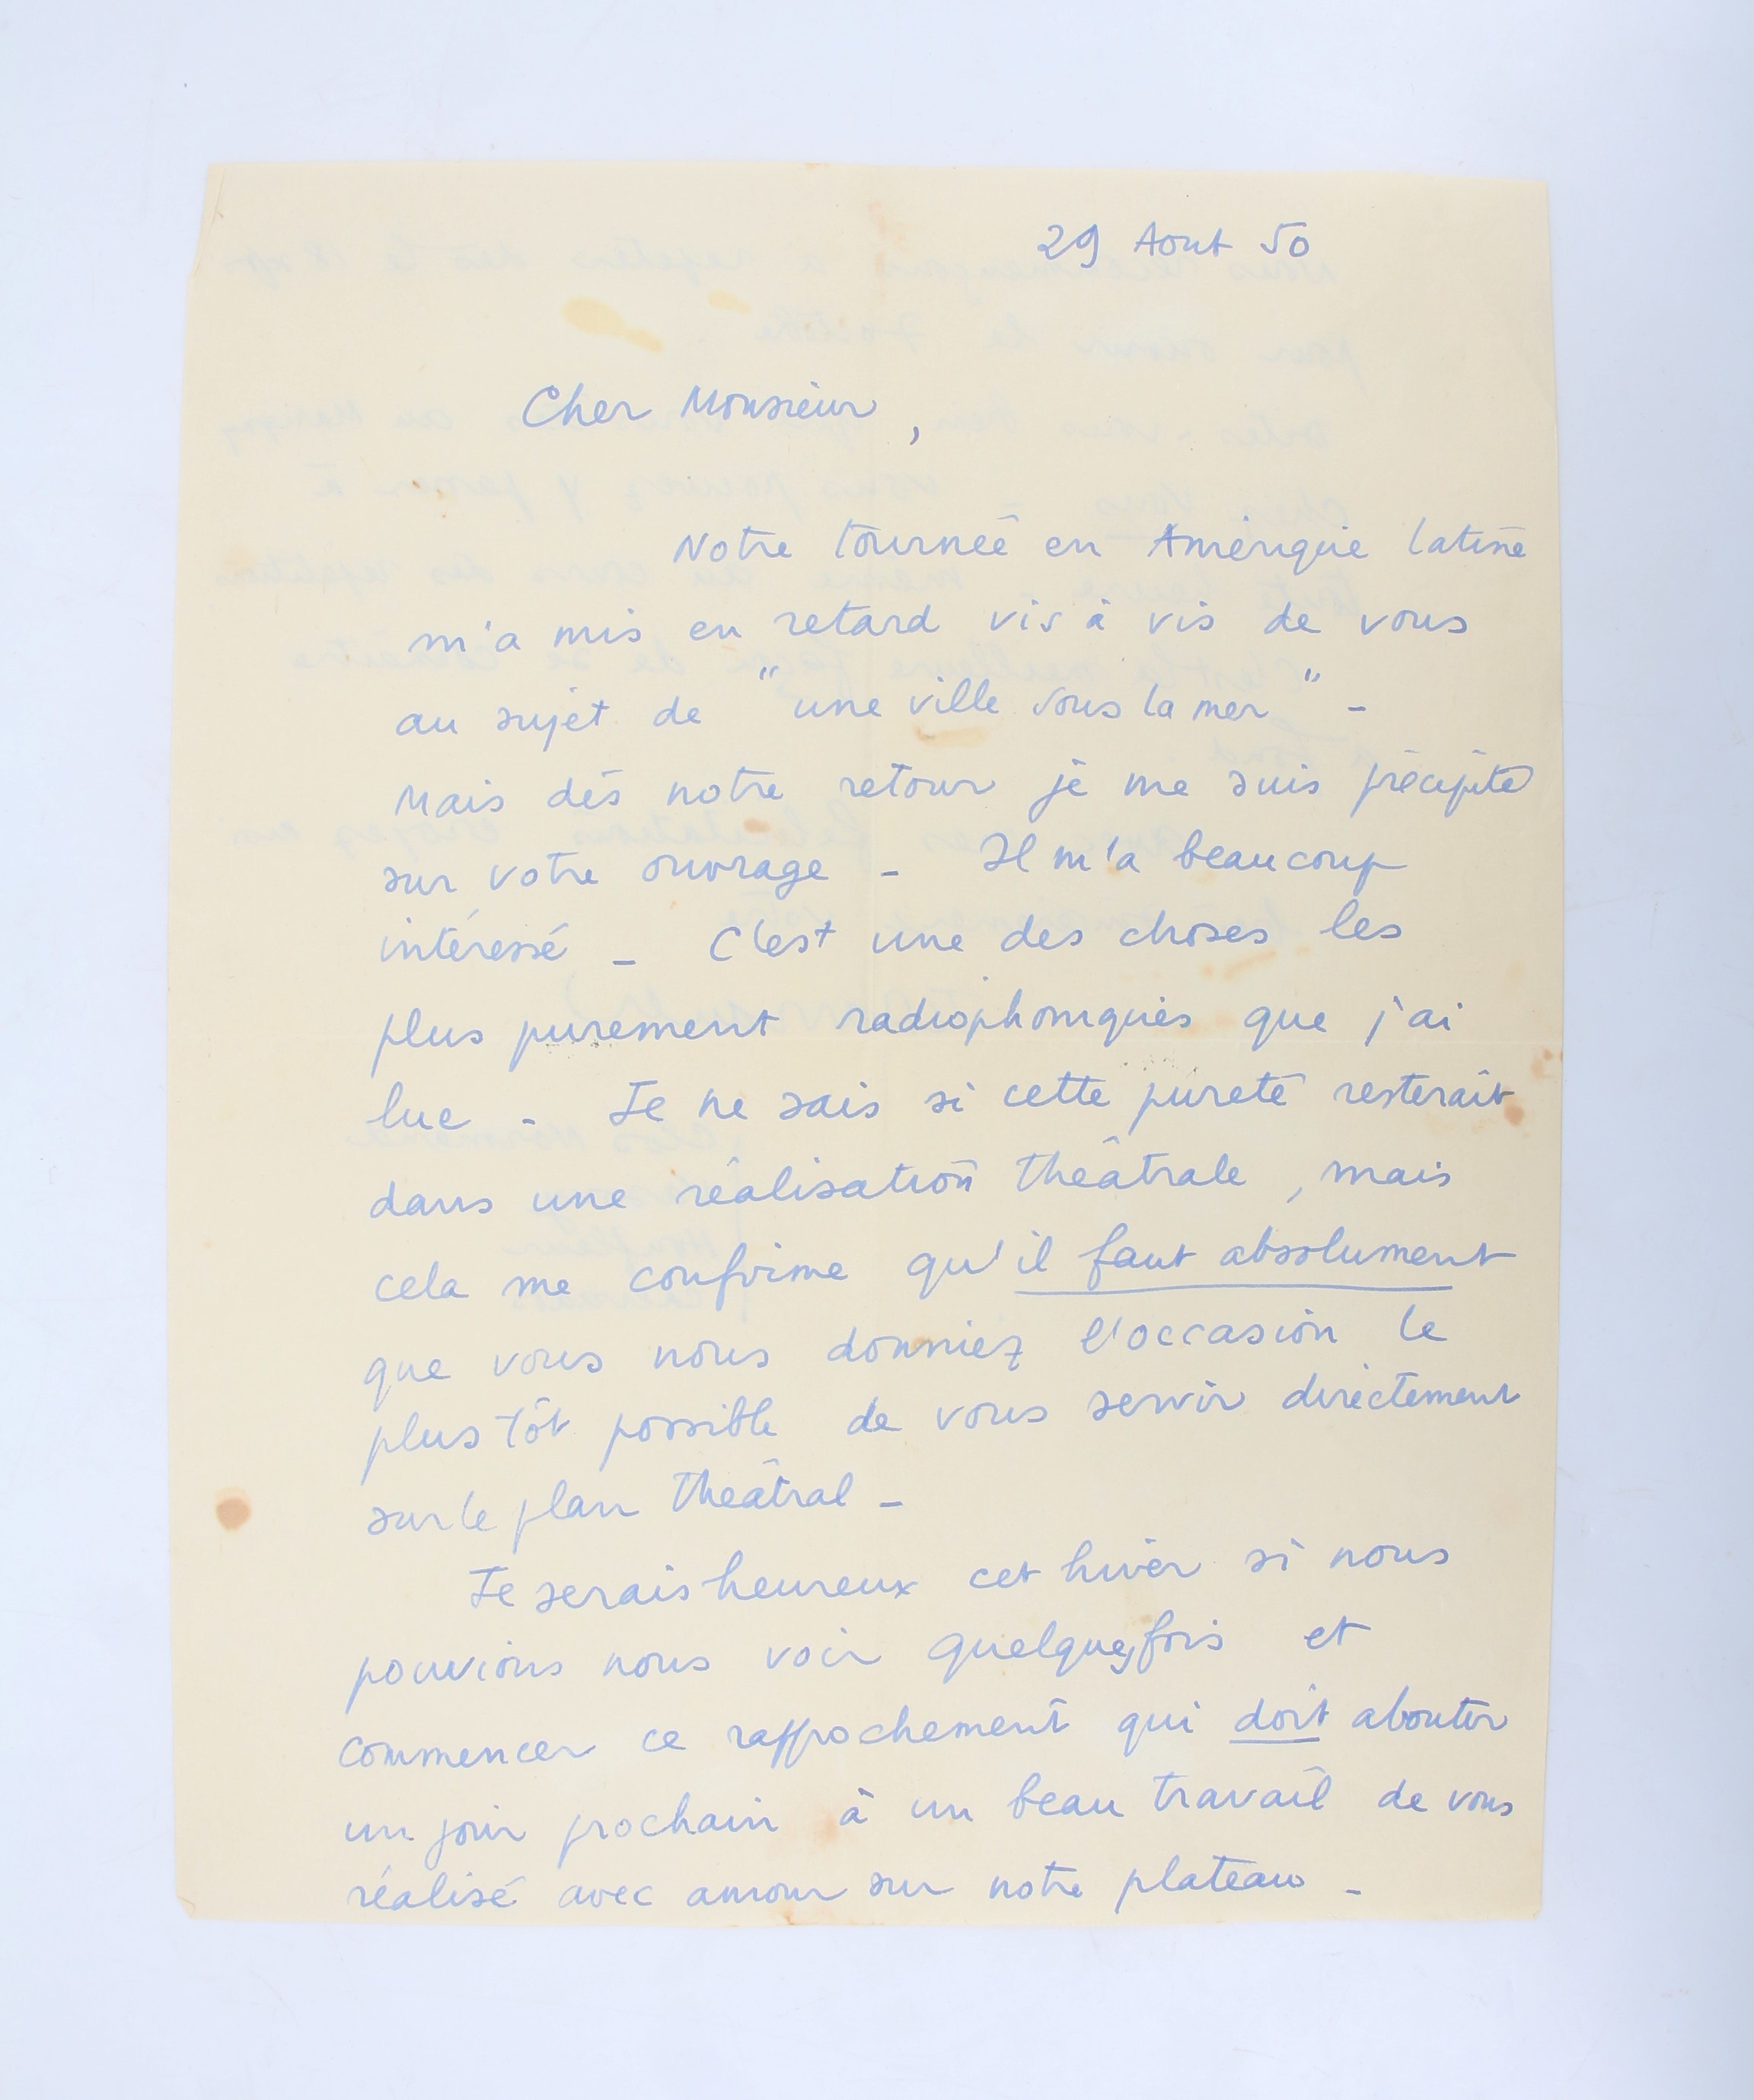 29 Aout 50
Cher Monsieur,
Notre tournée en Amérique latine
m'a mis en retard vis à vis de vous
au sujet de "une ville sous la mer" -
Mais dés notre retour je me suis précipité
sur votre ouvrage - Il m'a beaucoup
intéressé - C'est une des choses les
plus purement radiophoniques que j'ai
lue - Je ne sais si cette pureté resterait
dans une réalisation théâtrale, mais
cela me confirme qu'il faut absolument
que vous nous donniez l'occasion le
plus tôt possible de vous servir directement
sur le plan théâtral -
Je serais heureux cet hiver si nous
pouvions nous voir quelquesfois et
commencer ce rapprochement qui doit aboutir
un jour prochain à un beau travail de vous
réalisé avec amour sur notre plateau -